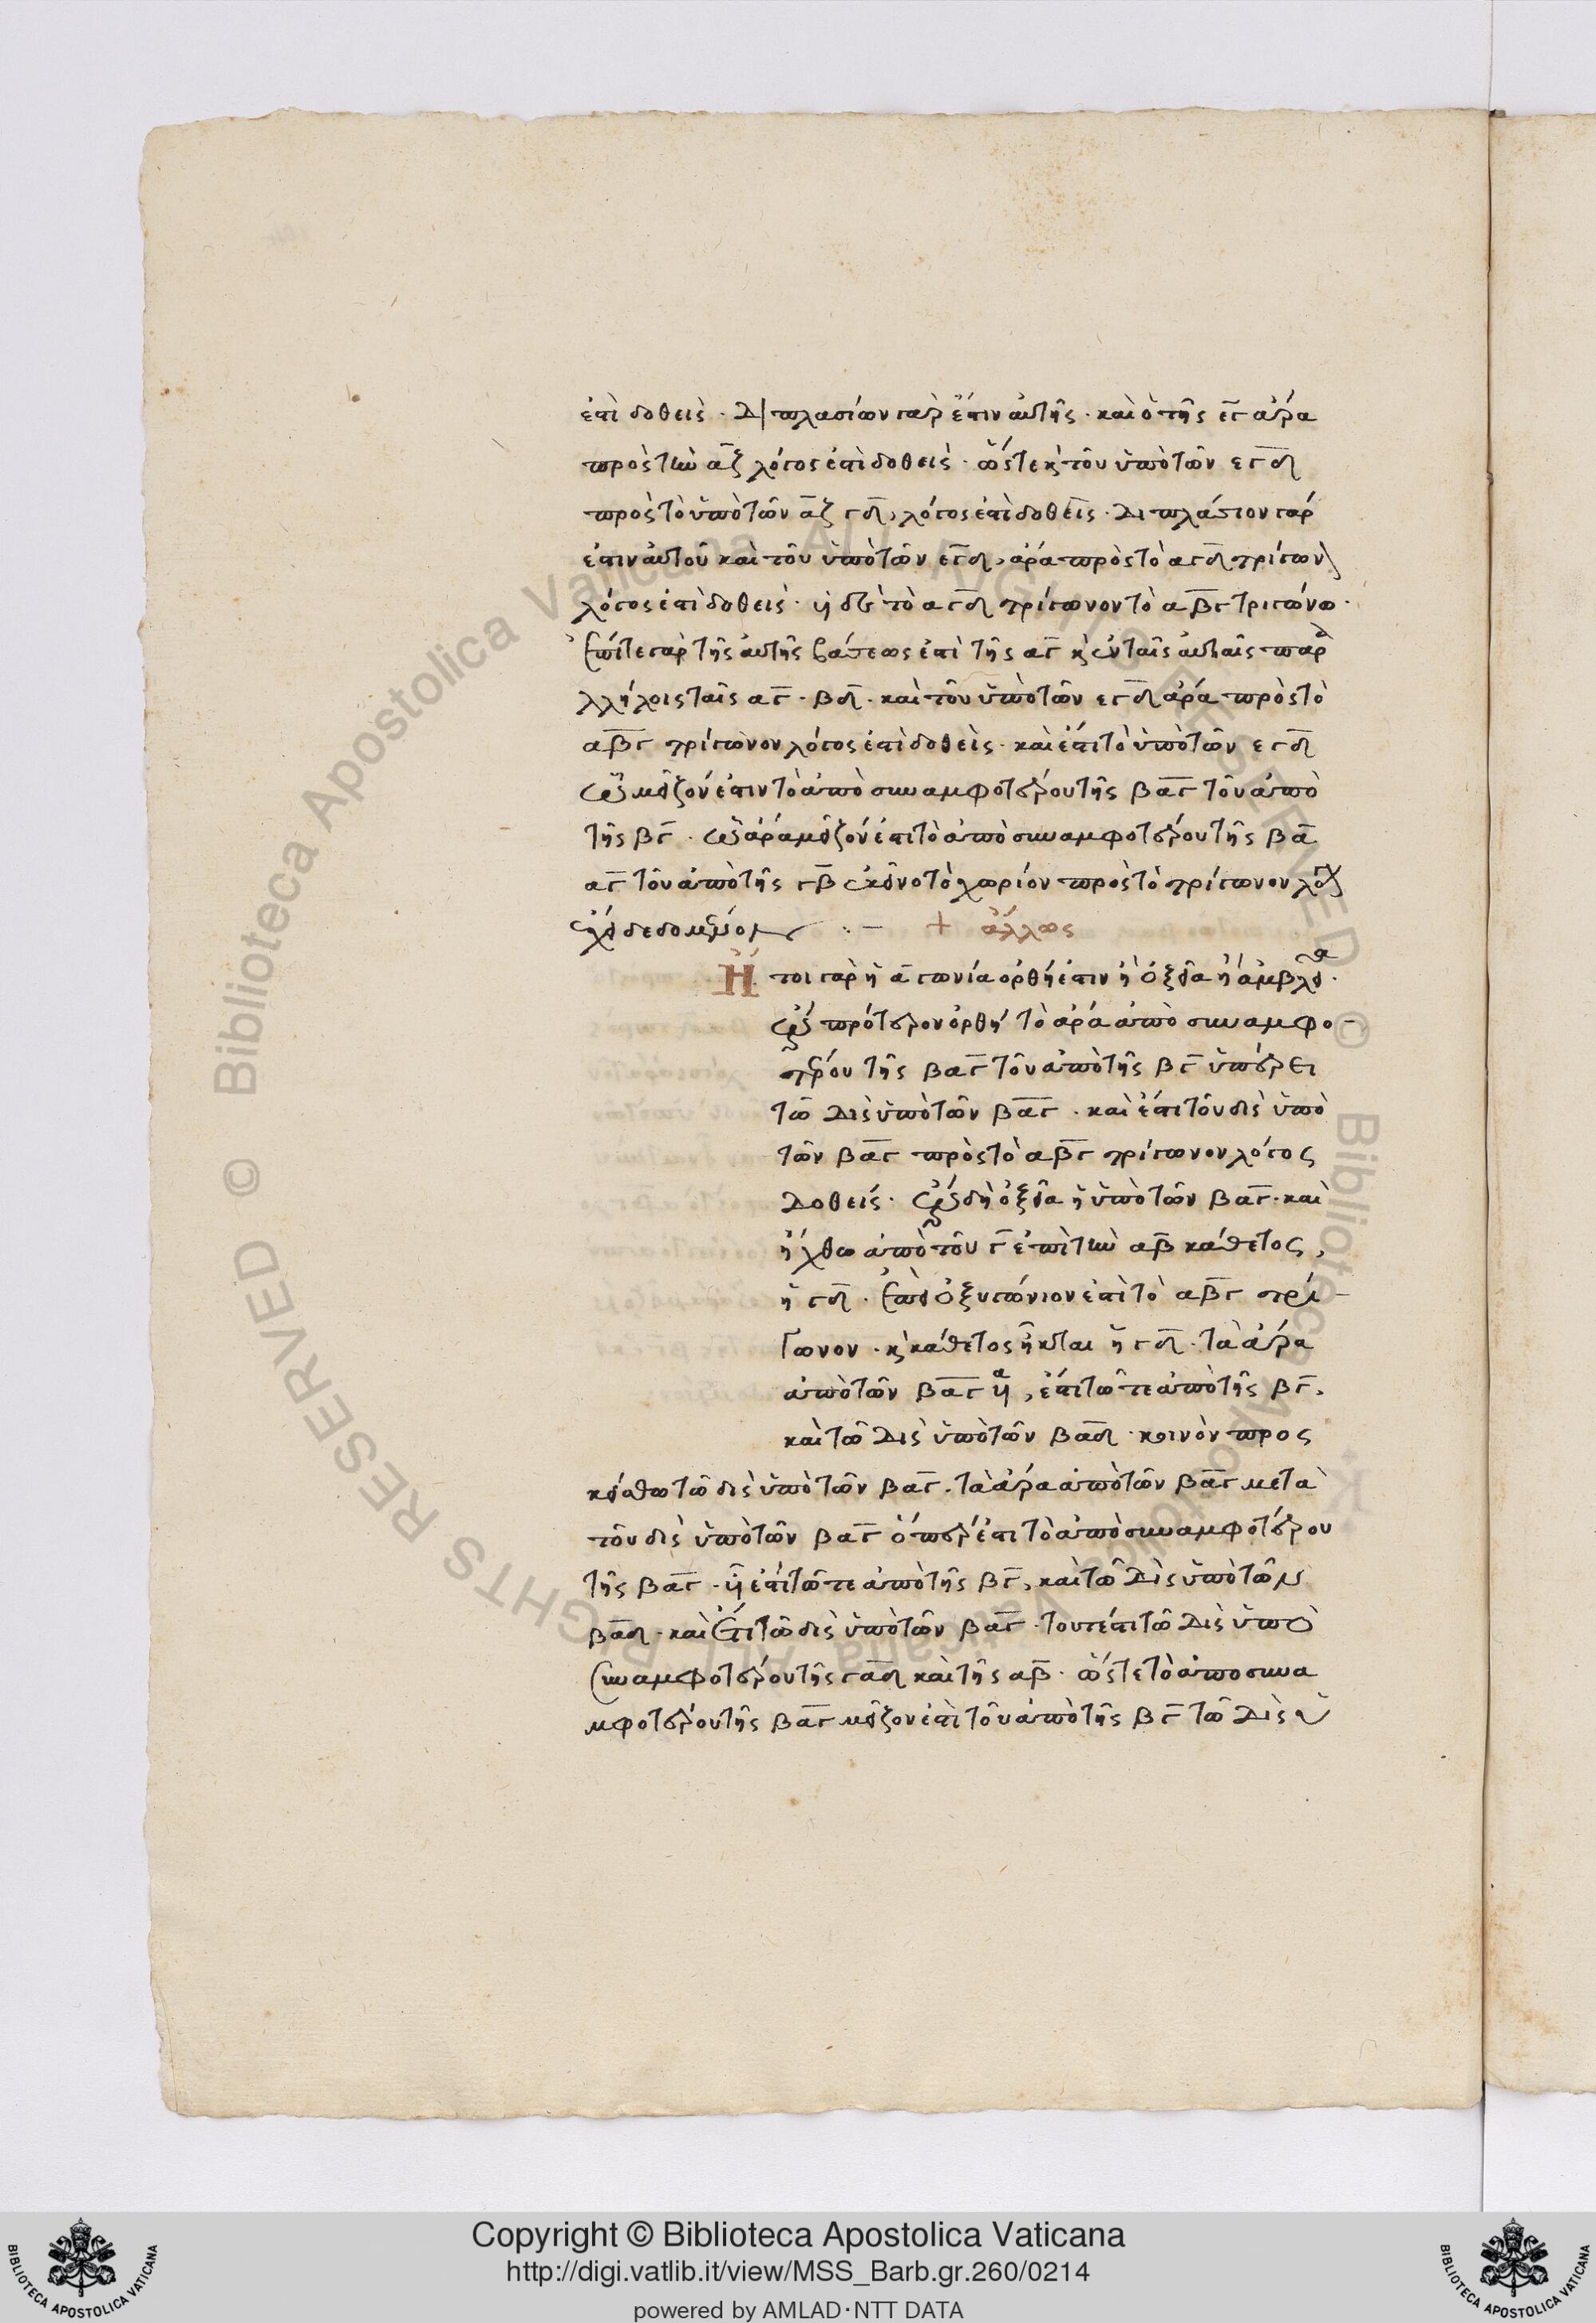 ἐστὶ δοθείς · διπλασίων γὰρ ἔστιν αὐτῆς · καὶ ὁ τῆς εγ ἄρα
πρὸς τὴν αζ λόγος ἐστὶ δοθείς · ὥστε κ τοῦ ὑπὸ τῶν εγδ
πρὸς τὸ ὑπὸ τῶν αζ γδ, λόγος ἐστὶ δοθείς · διπλάσιον γάρ
ἐστιν αὐτοῦ καὶ τοῦ ὑπὸ τῶν εγδ, ἄρα πρὸς τὸ αγδ τρίγων
λόγος ἐστὶ δοθείς · τὸ αγδ τρίγωνον τὸ αβγ τριγώνω ·
ἐπί τε γὰρ τῆς αὐτῆς βάσεως ἐστὶ τῆς αγ κ ἐν ταῖς αὐταῖς παρα
λλήλοις ταῖς αγ · βδ · καὶ τοῦ ὑπὸ τῶν εγδ ἄρα πρὸς τὸ
αβγ τρίγωνον λόγος ἐστὶ δοθείς · καὶ ἔστι τὸ ὑπὸ τῶν εγδ
ὧ μεῖζόν ἐστιν τὸ ἀπὸ συναμφοτέρου τῆς βαγ τοῦ ἀπὸ
τῆς βγ · ὧ ἄρα μεῖζόν ἐστι τὸ ἀπὸ συναμφοτέρου τῆς βα
αγ τοῦ ἀπὸ τῆς γβ ἐκεῖνο τὸ χωρίον πρὸς τὸ τρίγωνον λόγ
ἔχει δεδομένον :– + ἄλλως
Ἤτοι γὰρ ἡ α γωνία ὀρθή ἐστιν ἢ ὀξεῖα ἢ ἀμβλεῖα ·
ἔστω πρότερον ὀρθή τὸ ἄρα ἀπὸ συναμφο–
τέρου τῆς βαγ τοῦ ἀπὸ τῆς βγ ὑπέρει
τῶ δὶς ὑπὸ τῶν βαγ · καὶ ἔστι τοῦ δὶς ὑπὸ
τῶν βαγ πρὸς τὸ αβγ τρίγωνον λόγος
δοθείς · ἔστω δὴ ὀξεῖα ἡ ὑπὸ τῶν βαγ · καὶ
ἤχθω ἀπὸ τοῦ γ ἐπὶ τὴν αβ κάθετος,
ἡ γδ · ἐπεὶ ὀξυγώνιον ἐστὶ τὸ αβγ τρί–
γωνον · κ κάθετος ἦκται ἡ γδ · τὰ ἄρα
ἀπὸ τῶν βαγ, ἐστὶ τῶ τε ἀπὸ τῆς βγ,
καὶ τῶ δὶς ὑπὸ τῶν βαδ · κοινὸν προς
κείσθω τῶ δὶς ὑπὸ τῶν βαγ · τὰ ἄρα ἀπὸ τῶν βαγ μετὰ
τοῦ δὶς ὑπὸ τῶν βαγ ὅπερ ἐστι τὸ ἀπὸ συναμφοτέρου
τῆς βαγ · ἐστὶ τῶ τε ἀπὸ τῆς βγ, καὶ τῶ δὶς ὑπὸ τῶν
βαδ · καὶ ἔτι τῶ δὶς ὑπὸ τῶν βαγ · τουτέστι τῶ δὶς ὑπὸ
συναμφοτέρου τῆς γαδ καὶ τῆς αβ · ὥστε τὸ ἀπο συνα
μφοτέρου τῆς βαγ μεῖζον ἐστὶ τοῦ ἀπὸ τῆς βγ τῶ δὶς ὑ
Copyright © Biblioteca Apostolica Vaticana
http://digi.vatlib.it/view/MSS_Barb.gr.260/0214
powered by AMLAD·NTT DATA
BIBLIOTECA APOSTOLICA VATICANA
BIBLIOTECA APOSTOLICA VATICANA